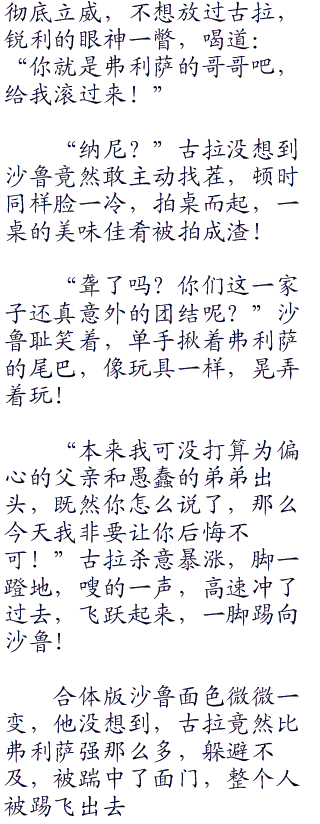 彻底立威，不想放过古拉，
锐利的眼神一瞥，喝道：
“你就是弗利萨的哥哥吧，
给我滚过来！”
“纳尼？”古拉没想到
沙鲁竟然敢主动找茬，顿时
同样脸一冷，拍桌而起，一
桌的美味佳肴被拍成渣！
“聋了吗？你们这一家
子还真意外的团结呢？”沙
鲁耻笑着，单手揪着弗利萨
的尾巴，像玩具一样，晃弄
着玩！
“本来我可没打算为偏
心的父亲和愚蠢的弟弟出
头，既然你怎么说了，那么
今天我非要让你后悔不
可！”古拉杀意暴涨，脚一
蹬地，嗖的一声，高速冲了
过去，飞跃起来，一脚踢向
沙鲁！
合体版沙鲁面色微微一
变，他没想到，古拉竟然比
弗利萨强那么多，躲避不
及，被踹中了面门，整个人
被踢飞出去